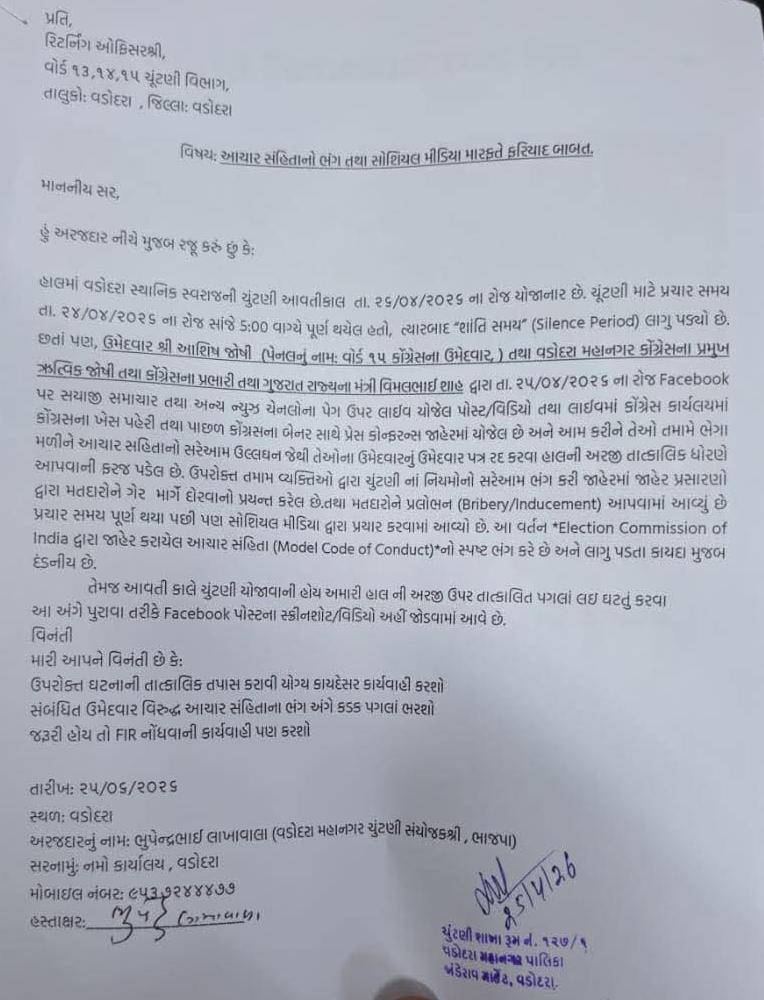 પ્રતિ,
રિટર્નિંગ ઓફિસરશ્રી,
વોર્ડ ૧૩,૧૪,૧૫ ચૂંટણી વિભાગ,
તાલુકો: વડોદરા , જિલ્લા: વડોદરા
વિષય: આચાર સંહિતાનો ભંગ તથા સોશિયલ મીડિયા મારફતે ફરિયાદ બાબત.
માનનીય સર,
હું અરજદાર નીચે મુજબ રજૂ કરું છું કે:
હાલમાં વડોદરા સ્થાનિક સ્વરાજની ચુંટણી આવતીકાલ તા. ૨૬/૦૪/૨૦૨૬ ના રોજ યોજાનાર છે. ચૂંટણી માટે પ્રચાર સમય
તા. ૨૪/૦૪/૨૦૨૬ ના રોજ સાંજે ૬:00 વાગ્યે પૂર્ણ થયેલ હતો, ત્યારબાદ "શાંતિ સમય" (Silence Period) લાગુ પડ્યો છે.
છતાં પણ, ઉમેદવાર શ્રી આશિષ જોષી (પેનલનું નામ: વોર્ડ ૧૫ કોંગ્રેસના ઉમેદવાર, ) તથા વડોદરા મહાનગર કોંગ્રેસના પ્રમુખ
ઋત્વિક જોષી તથા કોંગ્રેસના પ્રભારી તથા ગુજરાત રાજ્યના મંત્રી વિમલભાઈ શાહ દ્વારા તા. ૨૫/૦૪/૨૦૨૬ ના રોજ Facebook
પર સયાજી સમાચાર તથા અન્ય ન્યુઝ ચેનલોના પેગ ઉપર લાઈવ યોજેલ પોસ્ટ/વિડિયો તથા લાઈવમાં કોંગ્રેસ કાર્યલયમાં
કોંગ્રસના ખેસ પહેરી તથા પાછળ કોંગ્રસના બેનર સાથે પ્રેસ કોન્ફરન્સ જાહેરમાં યોજેલ છે અને આમ કરીને તેઓ તમામે ભેગા
મળીને આચાર સહિતાનો સરેઆમ ઉલ્લઘન જેથી તેઓના ઉમેદવારનું ઉમેદવાર પત્ર રદ કરવા હાલની અરજી તાત્કાલિક ધોરણે
આપવાની ફરજ પડેલ છે. ઉપરોક્ત તમામ વ્યક્તિઓ દ્વારા ચુંટણી નાં નિયમોનો સરેઆમ ભંગ કરી જાહેરમાં જાહેર પ્રસારણો
દ્વારા મતદારોને ગેર માર્ગે દોરવાનો પ્રયન્ત કરેલ છે.તથા મતદારોને પ્રલોભન (Bribery/Inducement) આપવામાં આવ્યું છે
પ્રચાર સમય પૂર્ણ થયા પછી પણ સોશિયલ મીડિયા દ્વારા પ્રચાર કરવામાં આવ્યો છે. આ વર્તન *Election Commission of
India દ્વારા જાહેર કરાયેલ આચાર સંહિતા (Model Code of Conduct)*નો સ્પષ્ટ ભંગ કરે છે અને લાગુ પડતા કાયદા મુજબ
દંડનીય છે.
તેમજ આવતી કાલે ચુંટણી યોજાવાની હોય અમારી હાલ ની અરજી ઉપર તાત્કાલિત પગલાં લઇ ઘટતું કરવા
આ અંગે પુરાવા તરીકે Facebook પોસ્ટના સ્ક્રીનશોટ/વિડિયો અહીં જોડવામાં આવે છે.
વિનંતી
મારી આપને વિનંતી છે કે:
ઉપરોક્ત ઘટનાની તાત્કાલિક તપાસ કરાવી યોગ્ય કાયદેસર કાર્યવાહી કરશો
સંબંધિત ઉમેદવાર વિરુદ્ધ આચાર સંહિતાના ભંગ અંગે કડક પગલાં ભરશો
જરૂરી હોય તો FIR નોંધવાની કાર્યવાહી પણ કરશો
તારીખ: ૨૫/૦૬/૨૦૨૬
સ્થળ: વડોદરા
અરજદારનું નામ: ભુપેન્દ્રભાઈ લાખાવાલા (વડોદરા મહાનગર ચુંટણી સંયોજકશ્રી , ભાજપા)
સરનામું: નમો કાર્યાલય , વડોદરા
મોબાઈલ નંબર: ૯૫૩૭૨૪૪૪૭૭
હસ્તાક્ષર:
25/4/26
ચુંટણી શાખા રૂમ નં. ૧૨૭/૧
વડોદરા મહાનગર પાલિકા
ખંડેરાવ માર્કેટ, વડોદરા.